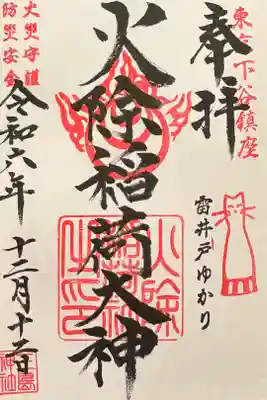 東台下谷鎮座
奉拝
雷井戸ゆかり
火除稲荷大神
火災守護
防災安全
令和六年 十二月十二日